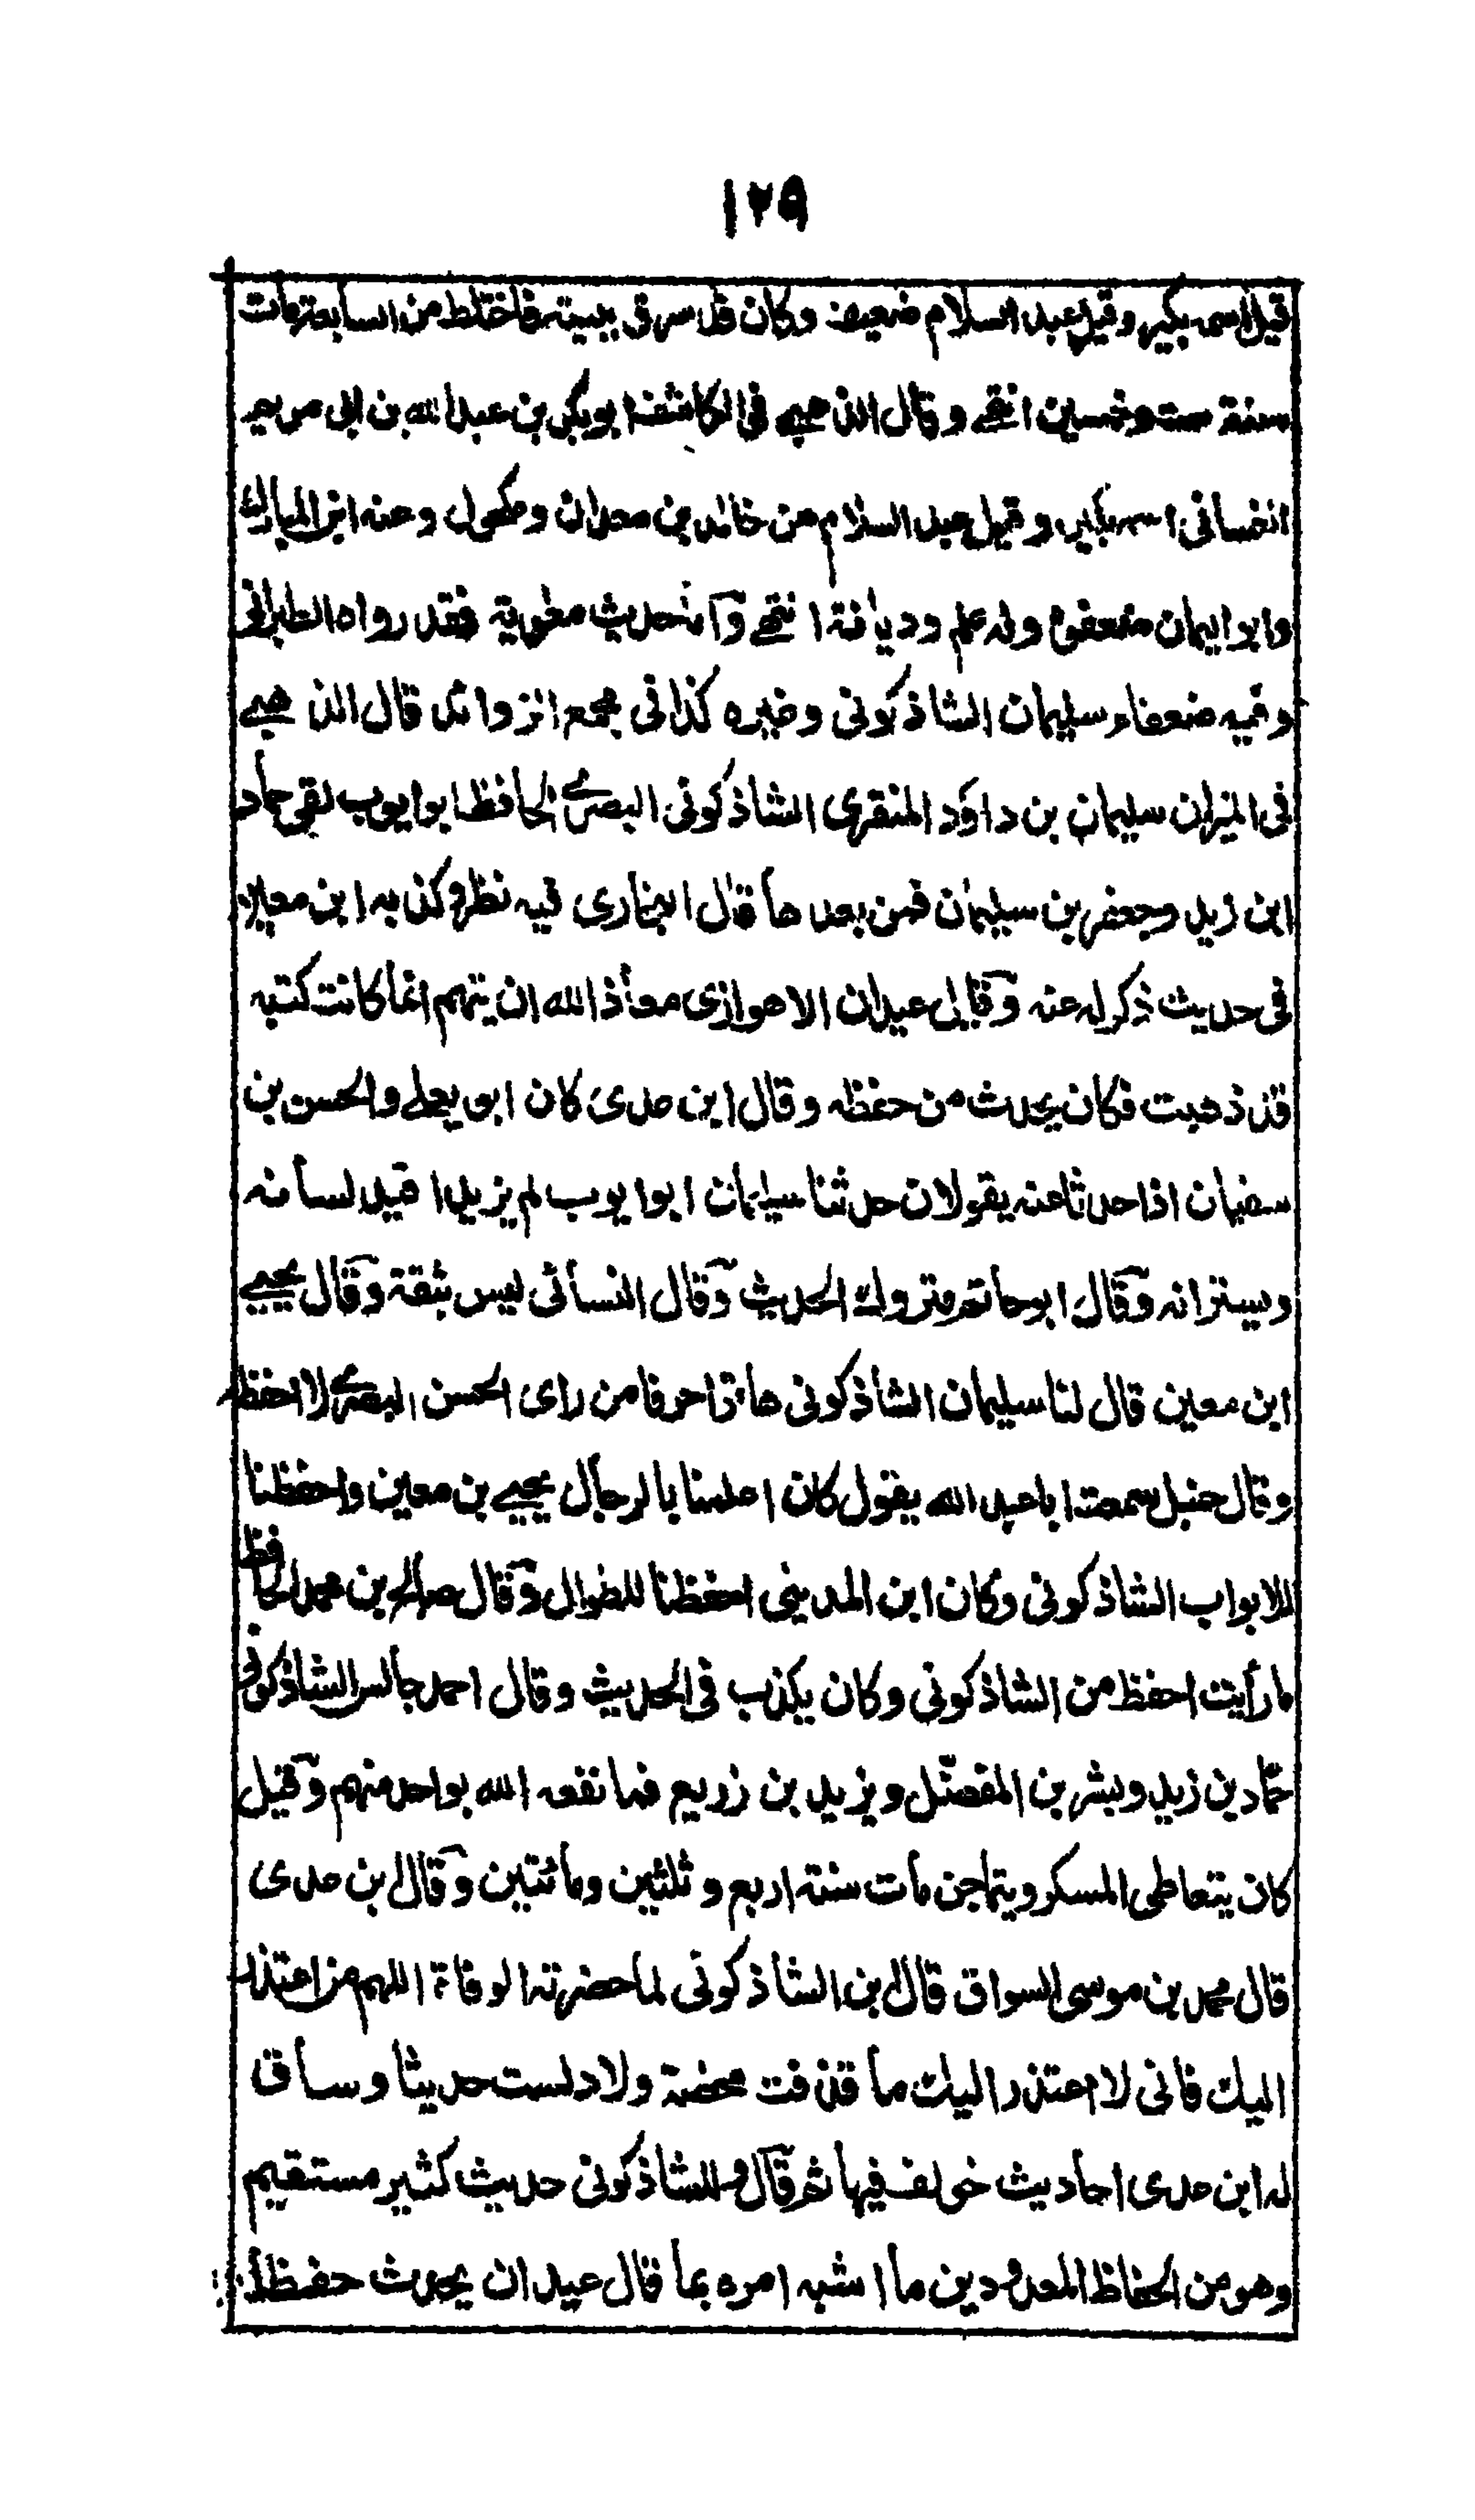 ١٢٩
قيل اسمه بكير وقيل عبد السلام ضعيف وكان قد سرق بيته فاختلط من السابعة مات
سنة ست وخمسين انتهى وقال الذهبي في الكاشف ابوبكر بن عبد الله بن ابى مريم
الغسانى اسمه بكير وقيل عبد السلام عن خالد بن معدان ومكحول وعنه ابن المبارك
وابو اليمان ضعفوه وله علم وديانة انتهى وآما حديث معوية فقد رواه الطبرانى
وفيه ضعفاء سليمان الشاذكونى وغيره كذا فى مجمع الزوائد قال الذهبي
فى الميزان سليمان بن داؤد المنقرى الشاذكونى البصرى الحافظ ابو ايوب لقى حماد
ابن زيد وجعفر بن سليمان فمن بعدهما قال البخارى فيه نظر وكذبه ابن معين
فى حديث ذكر له عنه وقال عبدان الاهوازى معاذ الله ان يتهم انما كانت كتبه
قد ذهبت فكان يحدث من حفظه وقال ابن عدى كان ابو يعلى والحسن بن
سفيان اذا حدثا عنه يقولان حدثنا سليمان ابو ايوب لم يزيدا قيد لسانه
ويستر انه وقال ابو حاتم متروك الحديث وقال النسائى ليس بثقة وقال يحيى
ابن معين قال لنا سليمان الشاذكونى هاتوا حرفا من راى الحسن البصرى لا احفظه
وقال حنبل سمعت ابا عبد الله يقول كان اعلمنا بالرجال يحيى بن معين واحفظنا
للابواب الشاذكونى وكان ابن المدينى احفظنا للطوال وقال صالح بن محمد الحافظ
ما رأيت احفظ من الشاذكونى وكان يكذب فى الحديث وقال احمد جالس الشاذكونى
حماد بن زيد وبشر بن المفضل ويزيد بن زريع فما نفعه الله بواحد منهم وقيل
كان يتعاطى المسكر ويتماجن مات سنة اربع وثلثين ومائتين وقال بن عدى
قال محمد بن موسى السواق قال بن الشاذكونى لما حضرته الوفاة اللهم من اعتذر
اليك فانى لا اعتذر اليك ما قذفت محصنة ولا دلست حديثا وساق
له ابن عدى احاديث خولف فيها ثم قال وللشاذكونى حديث كثير مستقيم
وهو من الحفاظ المعدودين ما اشبه امره بما قال عبدان يحدث حفظا